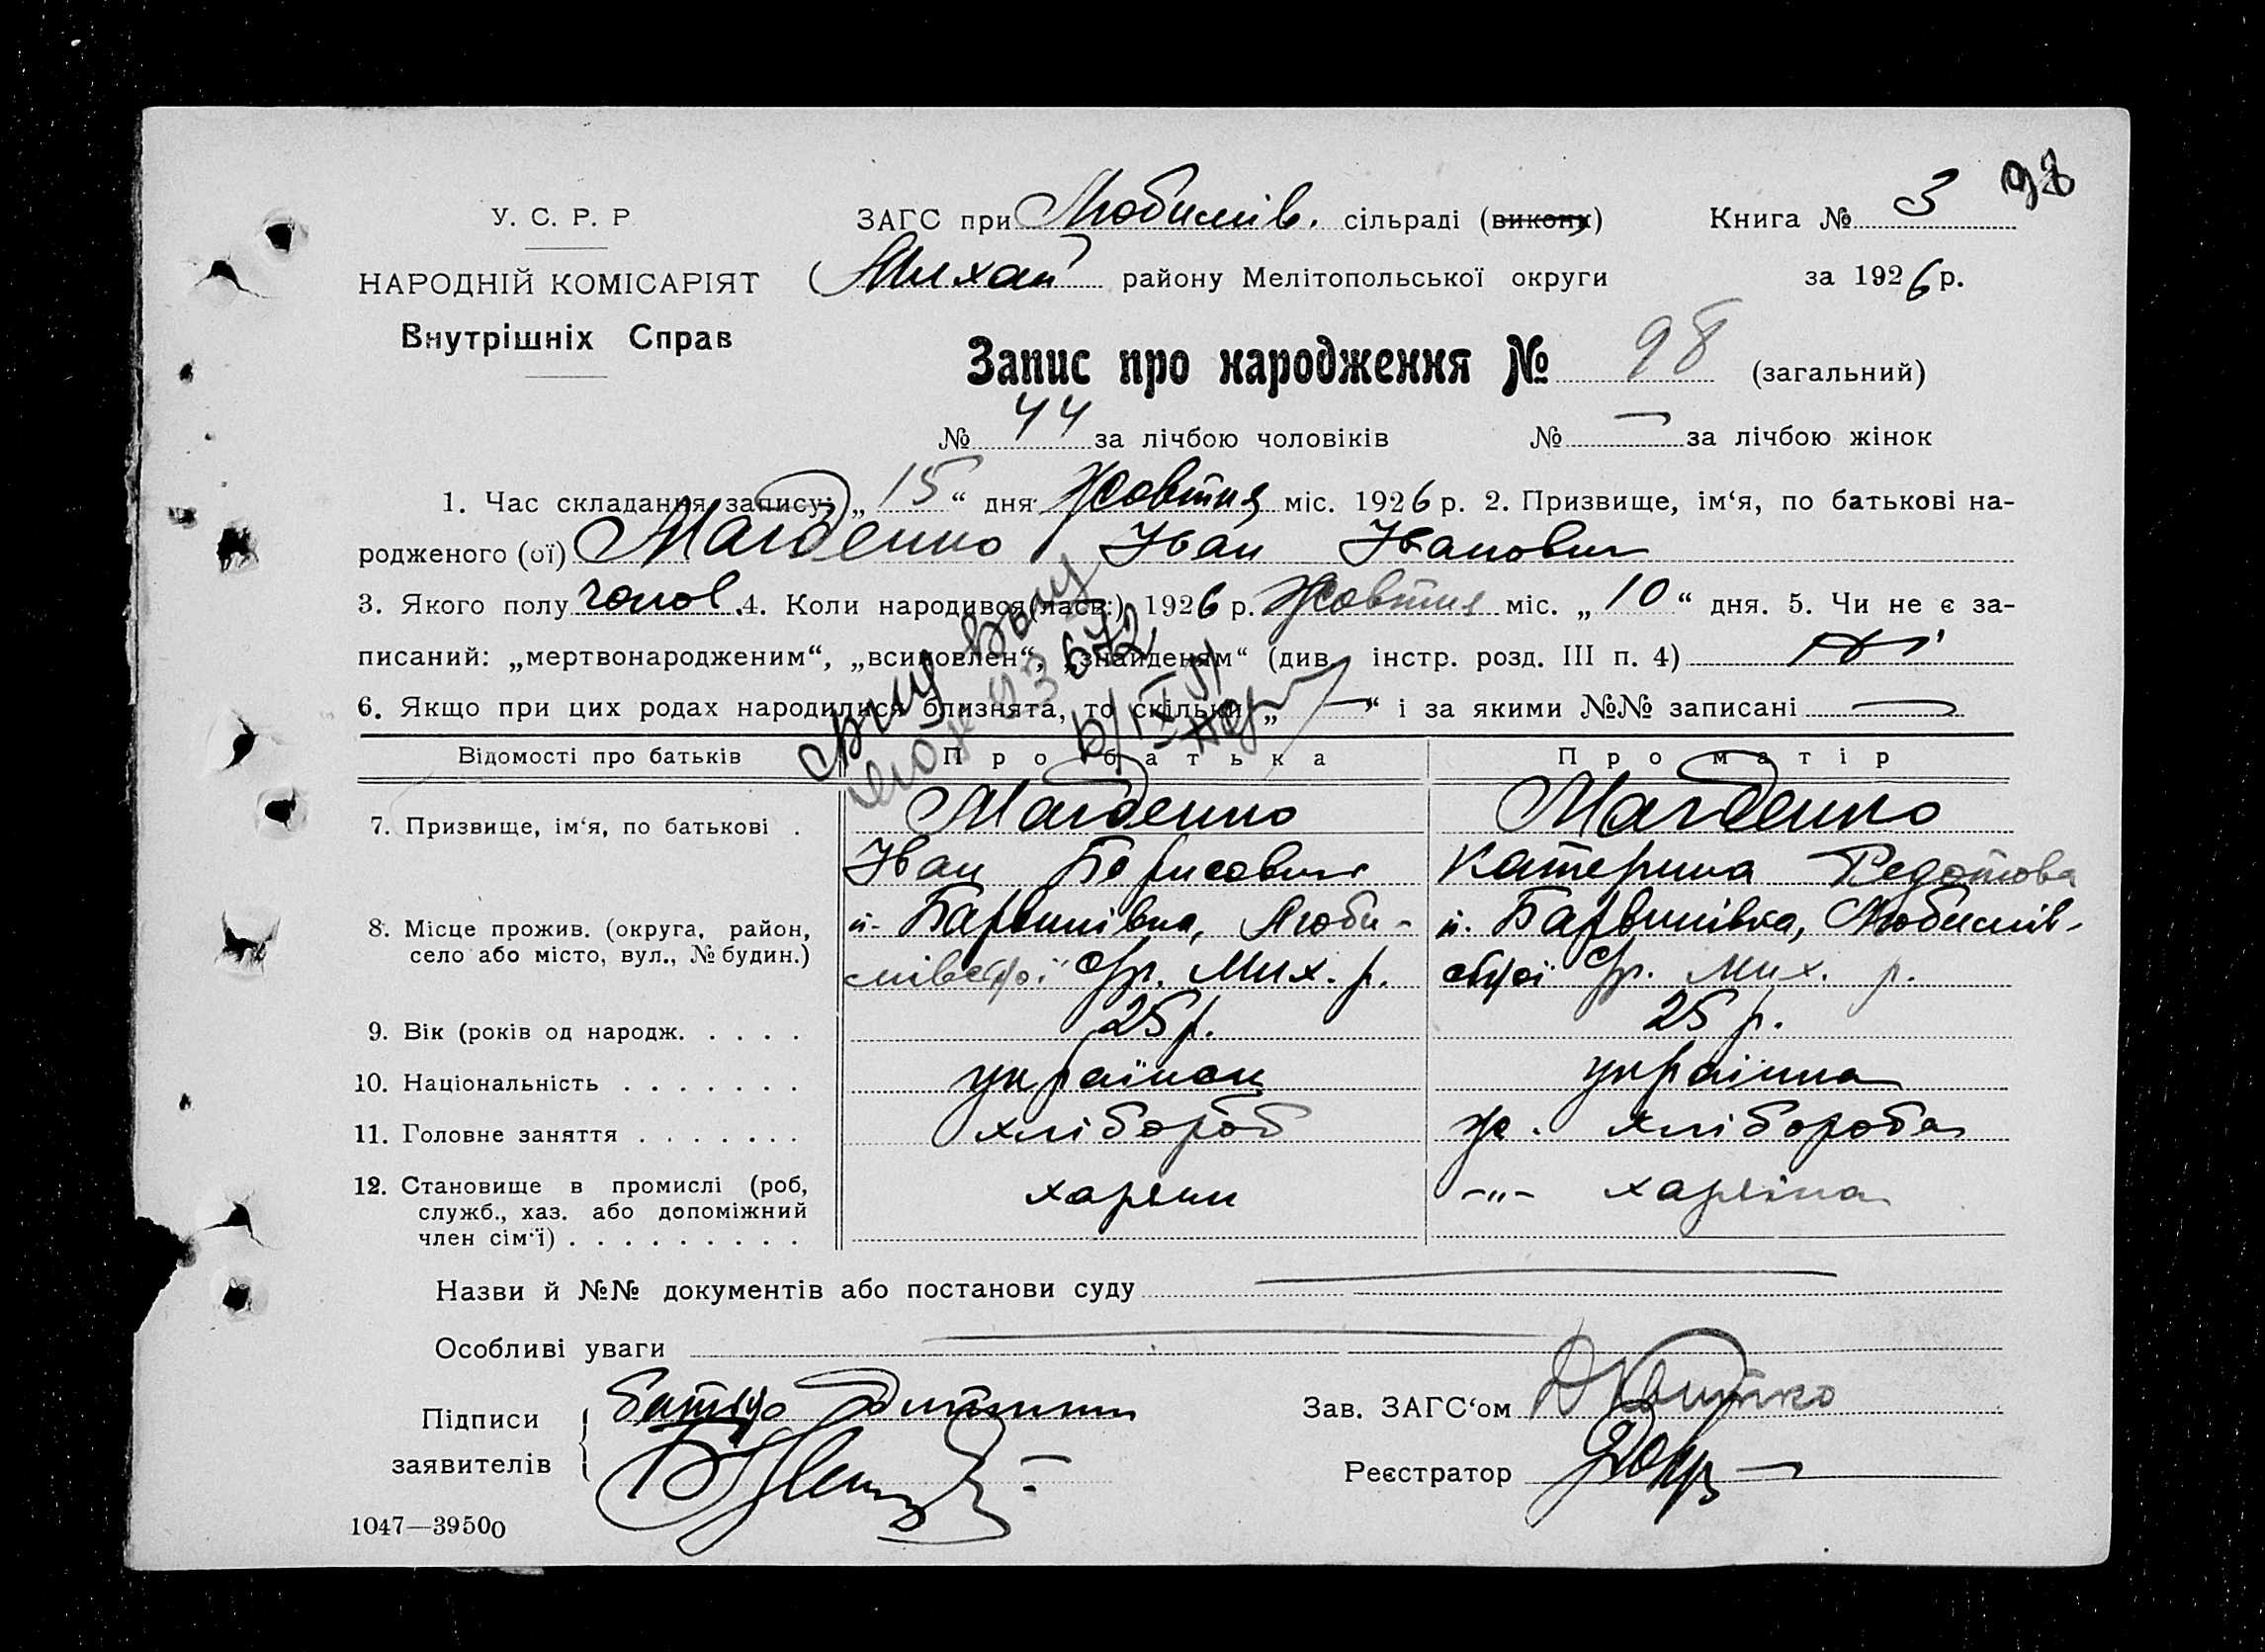 98
У. С. Р. Р
ЗАГС при Любимів. сільраді (викону)
Книга № 3
НАРОДНІЙ КОМІСАРІЯТ
Михай району Мелітопольської округи
за 1926 р.
Внутрішніх Справ
Запис про народження № 98 (загальний)
№ 44 за лічбою чоловіків № — за лічбою жінок
1. Час складання запису: „ 15 “ дня Жовтня міс. 1926 р. 2. Призвище, ім‘я, по батькові на-
родженого (ої) Магденко Іван Іванович
3. Якого полу чолов. 4. Коли народився(лась:) 1926 р. Жовтня міс. „ 10 “ дня. 5. Чи не є за-
писаний: „мертвонародженим“, „всиновлен“, „знайденям“ (див. інстр. розд. III п. 4) Ні
6. Якщо при цих родах народилися близнята, то скільки „ — “ і за якими №№ записані —
Відомості про батьків
Про батька
Про матір
7. Призвище, ім‘я, по батькові .
Магденко
Іван Борисович
Магденко
Катерина Федотова
8. Місце прожив. (округа, район,
село або місто, вул., № будин.)
п. Барвинівка, Люби-
мівської с/р. Мих. р.
п. Барвинівка, Любимів-
ської с/р. Мих. р.
9. Вік (років од народж. . . . .
25 р.
25 р.
10. Національність . . . . . . .
українец
українка
11. Головне заняття . . . . . . .
хлібороб
ж. хлібороба
12. Становище в промислі (роб,
служб., хаз. або допоміжний
член сім‘ї) . . . . . . . . .
харзяин
-„- 
Назви й №№ документів або постанови суду
Особливі уваги
Підписи
заявителів
батько дитини
Зав. ЗАГС‘ом
Реєстратор
1047—39500